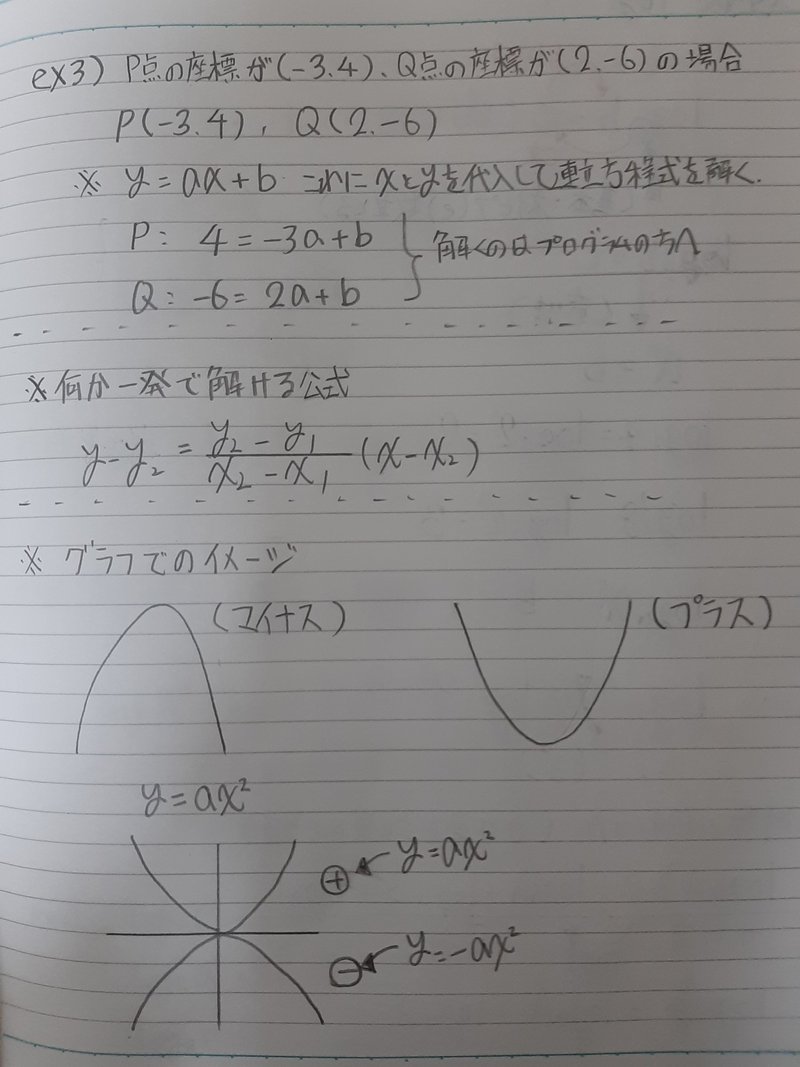 ex3) P点の座標が(-3.4)、Q点の座標が(2.-6)の場合
P(-3.4), Q(2.-6)
※ y=ax+b これにxとyを代入して連立方程式を解く.
P: 4=-3a+b
解くのはプログラムの方へ
Q: -6=2a+b
※何か一発で解ける公式
y-y₂ = (y₂-y₁)/(x₂-x₁) (x-x₂)
※ グラフでのイメージ
(マイナス) (プラス)
y=ax²
⊕ y=ax²
⊖ y=-ax²